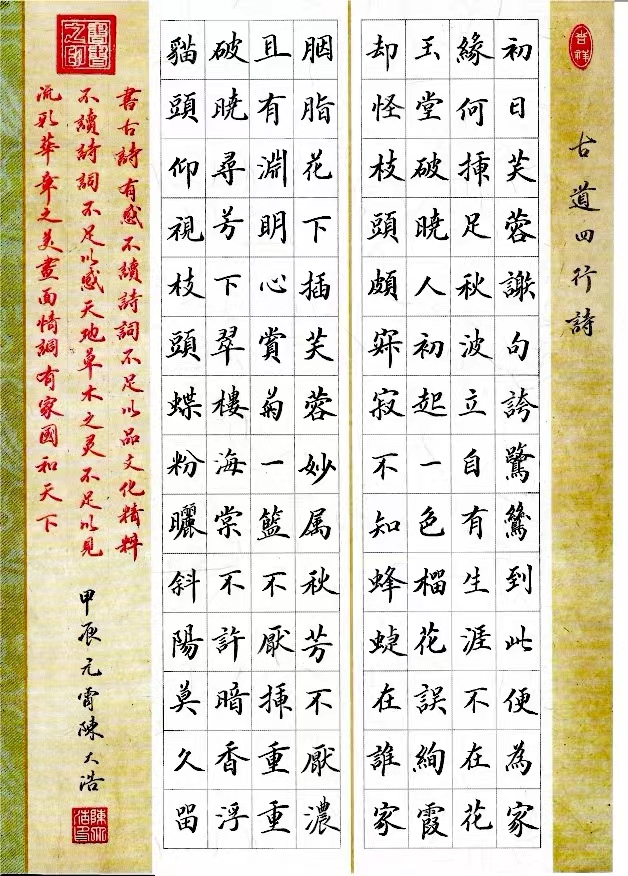 吉祥
古道四行詩
初日芙蓉謝句誇鷺鷥到此便為家
緣何挿足秋波立自有生涯不在花
玉堂破曉人初起一色榴花誤絢霞
却怪枝頭頗寂寂不知蜂蜨在誰家
胭脂花下插芙蓉妙属秋芳不厭濃
且有淵明心賞菊一籃不厭挿重重
破曉尋芳下翠樓海棠不許暗香浮
貓頭仰視枝頭蝶粉曬斜陽莫久留
書古詩有感不讀詩詞不足以品文化精粹
不讀詩詞不足以感天地草木之灵不足以見
流彩華章之美畫面情調有家國和天下
甲辰元宵陳大浩